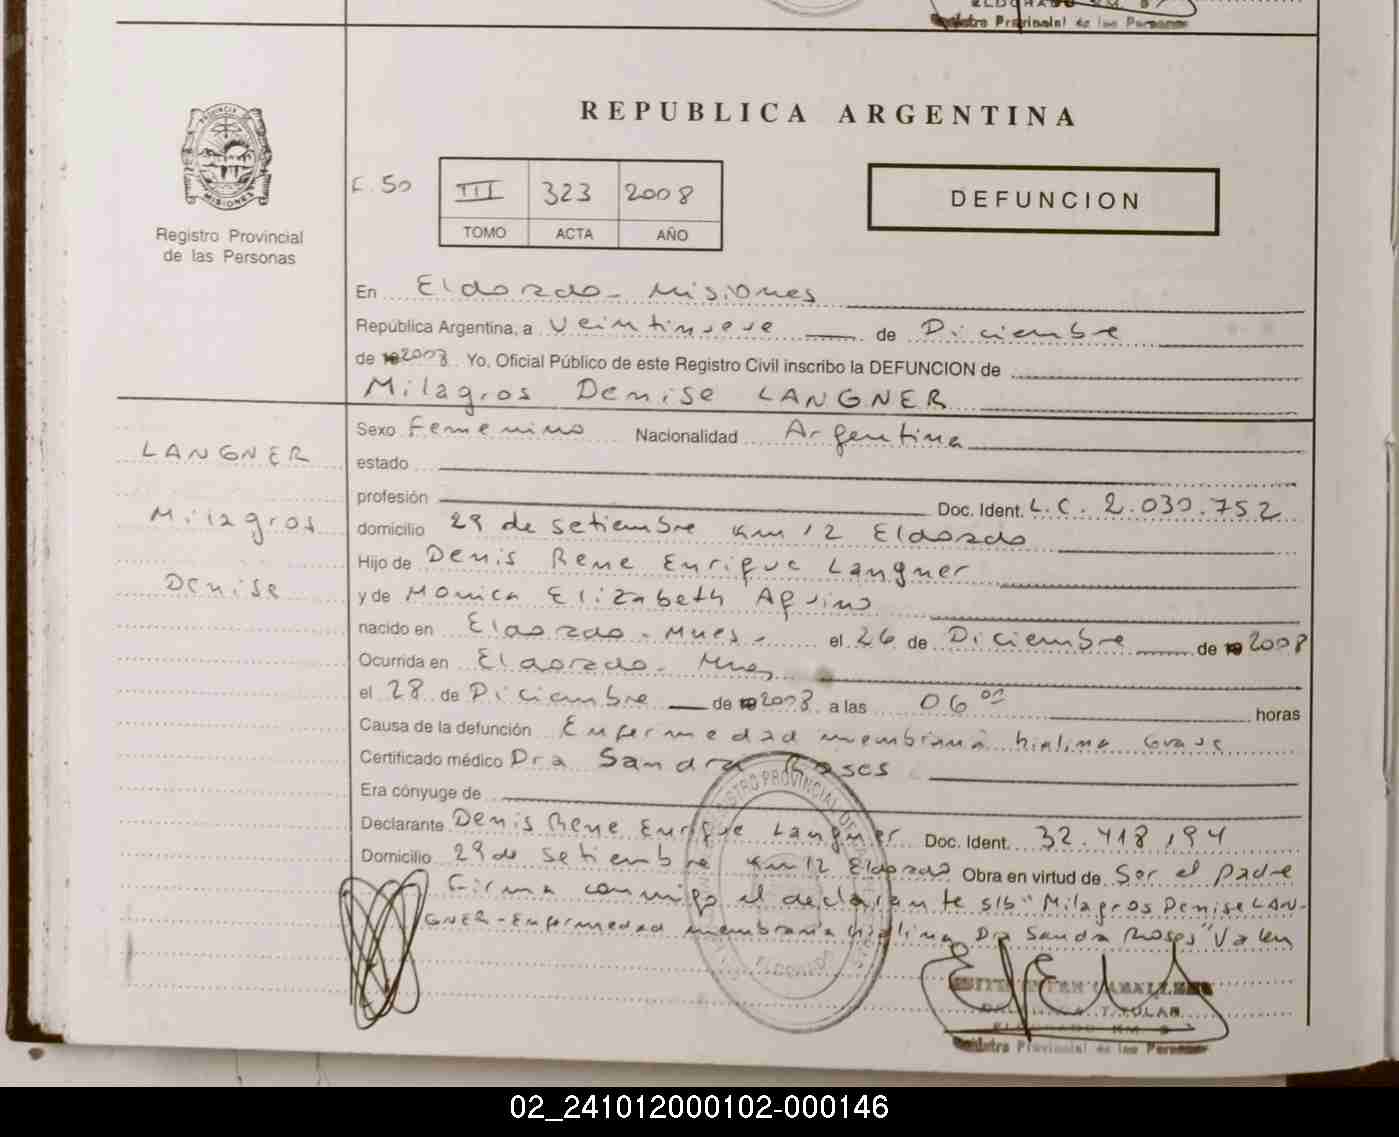 ELDORADO KM. 9
Registro Provincial de las Personas
PROVINCIA DE MISIONES
Registro Provincial
de las Personas
REPUBLICA ARGENTINA
F. 50
III 323 2008
TOMO ACTA AÑO
DEFUNCION
En Eldorado - Misiones
República Argentina, a veintinueve de Diciembre
de 2008. Yo, Oficial Público de este Registro Civil inscribo la DEFUNCION de
Milagros Denise LANGNER
LANGNER
Milagros
Denise
Sexo Femenino Nacionalidad Argentina
estado
profesión Doc. Ident. L.C. 2.030.752
domicilio 29 de setiembre km 12 Eldorado
Hijo de Denis Rene Enrique Langner
y de Monica Elizabeth Aquino
nacido en Eldorado - Mnes - el 26 de Diciembre de 2008
Ocurrida en Eldorado - Mnes
el 28 de Diciembre de 2008 a las 06 00 horas
Causa de la defunción Enfermedad membrana hialina Grave
Certificado médico Dra Sandra Roses
Era cónyuge de
Declarante Denis Rene Enrique Langner Doc. Ident. 32.418,194
Domicilio 29 de setiembre km 12 Eldorado Obra en virtud de Ser el padre
Firma conmigo el declarante s/b "Milagros Denise LAN-
GNER - Enfermedad membrana hialina Dra Sandra Roses" Valen
REGISTRO PROVINCIAL DE
ELDORADO
TITULAR
ELDORADO KM 9
Registro Provincial de las Personas
02_241012000102-000146